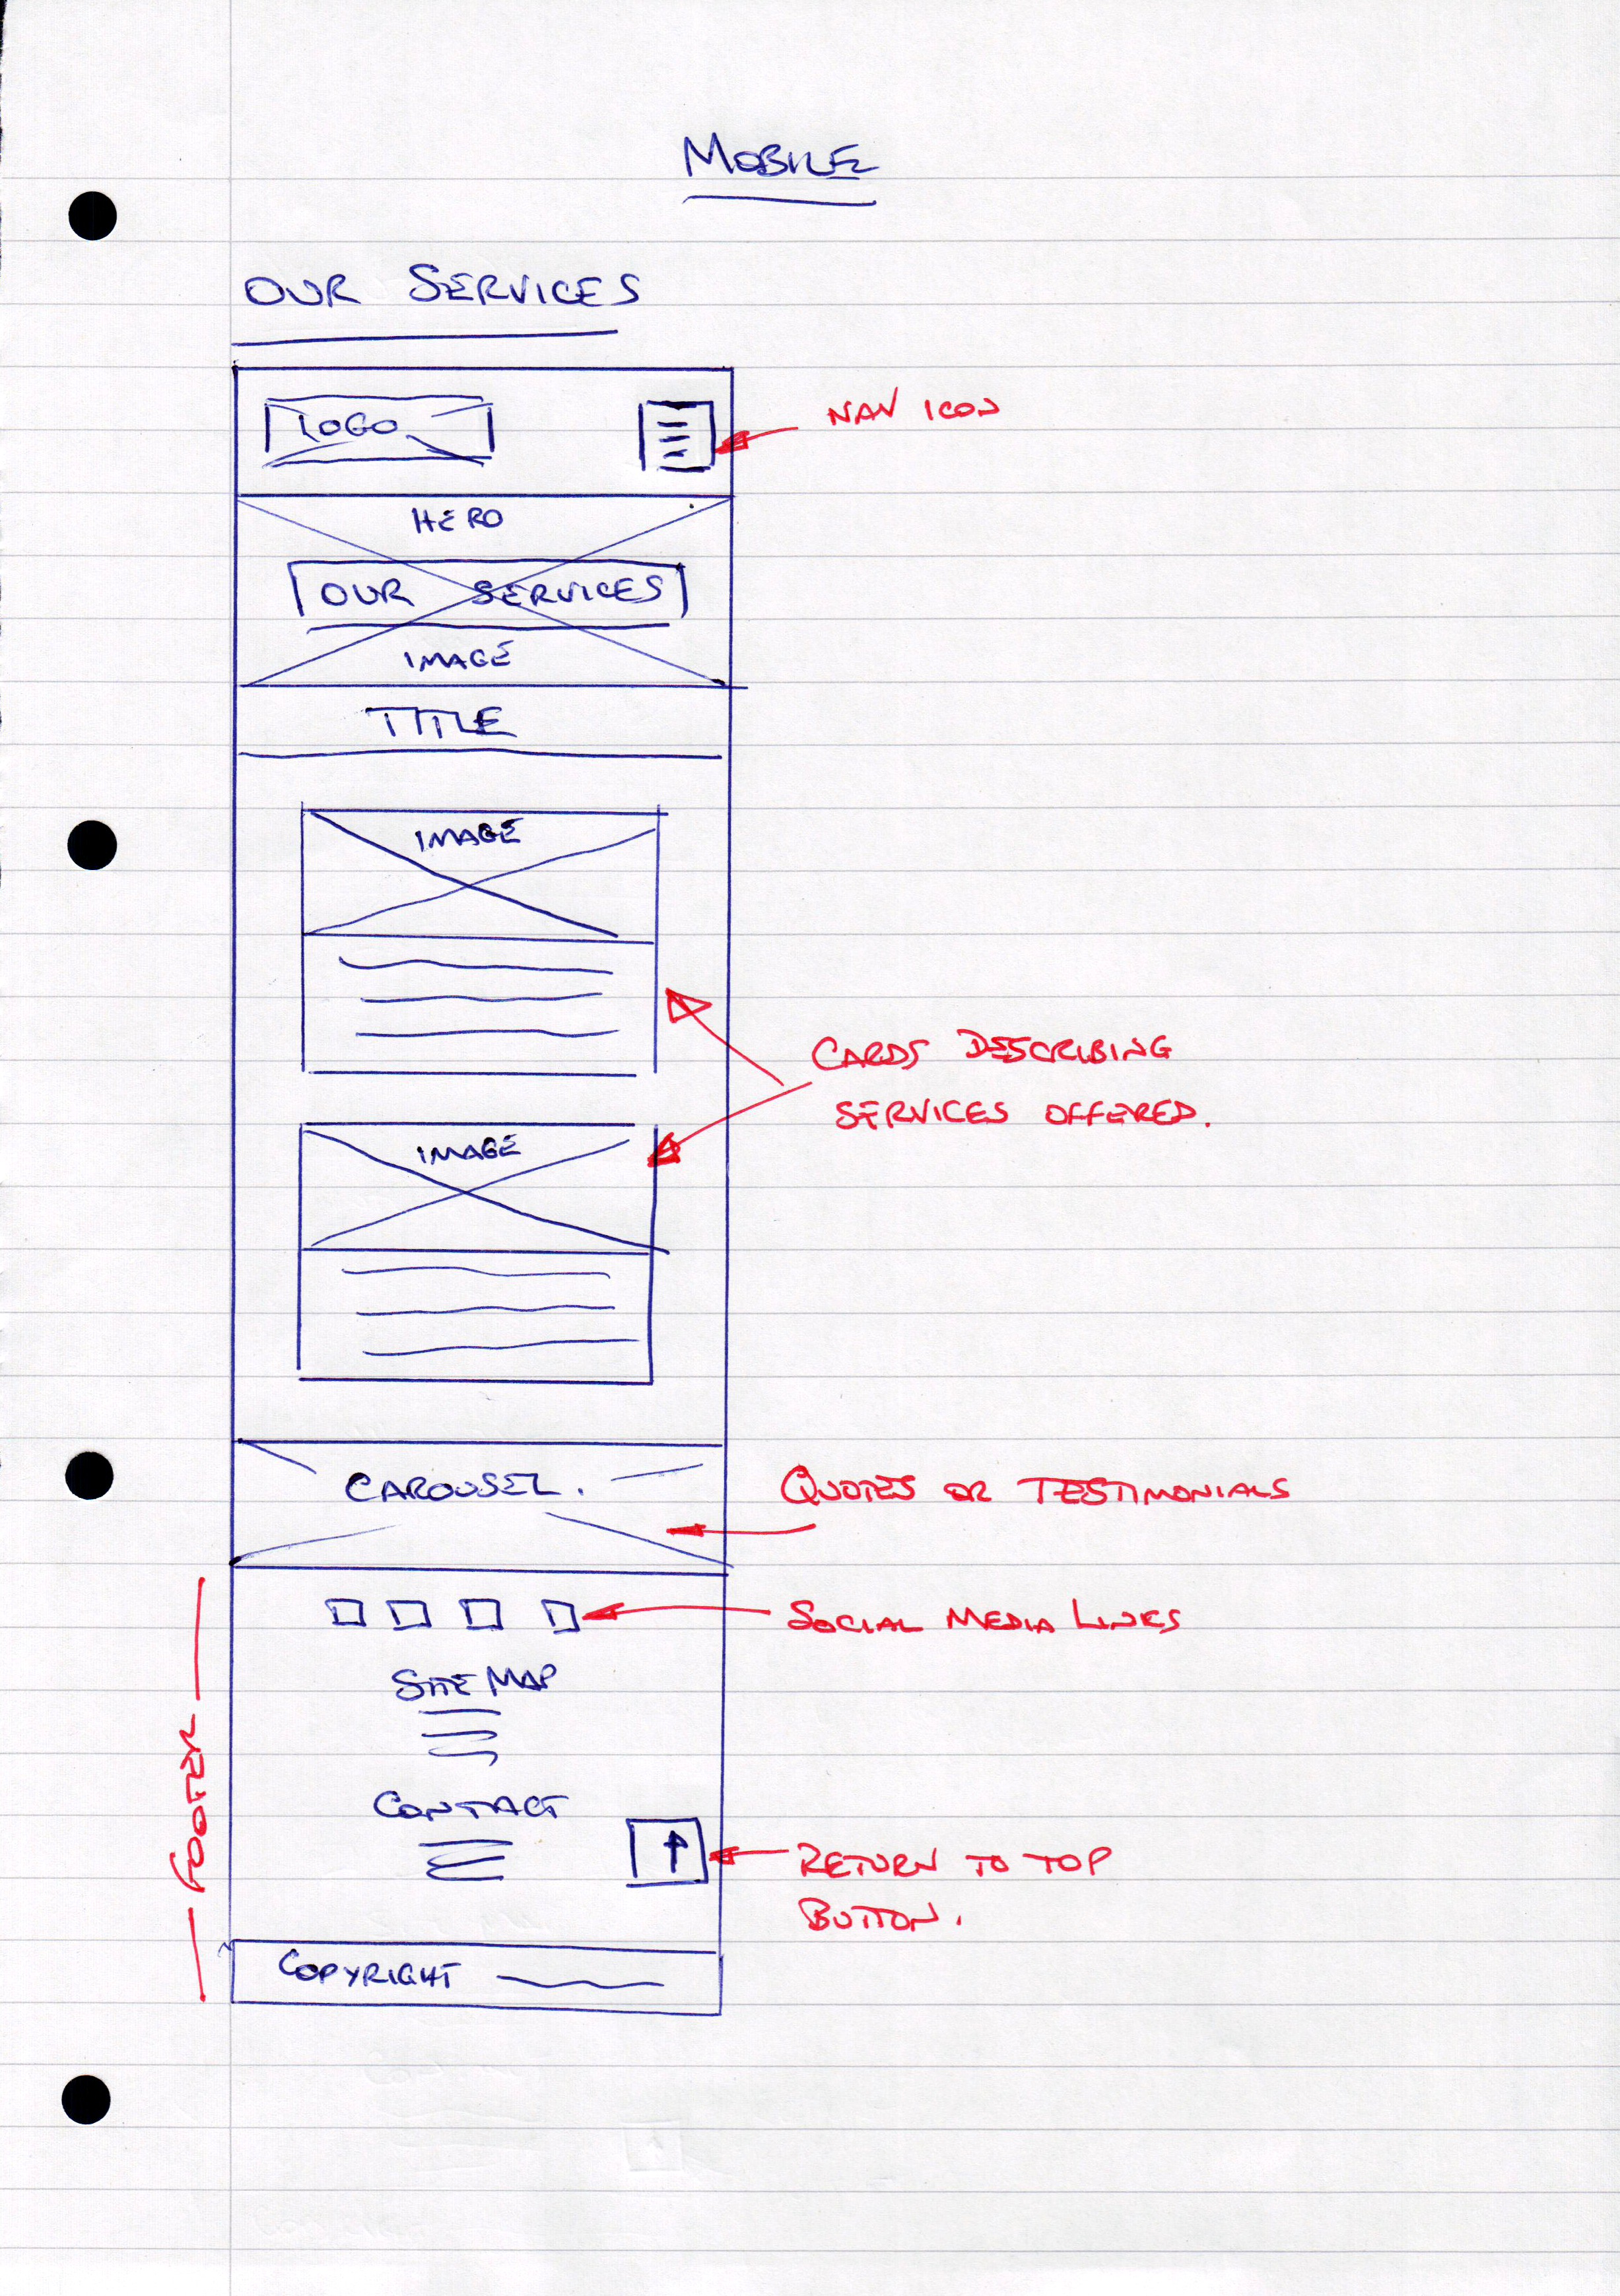 MOBILE
OUR SERVICES
LOGO
NAV ICON
HERO
OUR SERVICES
IMAGE
TITLE
IMAGE
CARDS DESCRIBING
SERVICES OFFERED.
IMAGE
CAROUSEL.
QUOTES OR TESTIMONIALS
SOCIAL MEDIA LINKS
SITE MAP
FOOTER
CONTACT
RETURN TO TOP
BUTTON.
COPYRIGHT